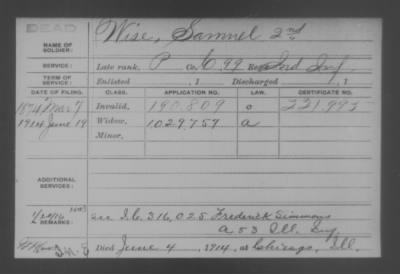 DEAD
Wise, Samuel 2nd
NAME OF SOLDIER:
SERVICE: Late rank, P Co. G, 99 Reg Ind Inf.
TERM OF SERVICE: Enlisted , 1 Discharged , 1
DATE OF FILING. CLASS. APPLICATION NO. LAW. CERTIFICATE NO.
1874 Mar 7 Invalid, 190.809 o 231.995
1914 June 19 Widow, 1029.759 a
Minor,
ADDITIONAL SERVICES:
REMARKS: see I.C. 316,025 Frederick Simmons
A 53 Ill. Inf
Died June 4, 1914, at Chicago, Ill.